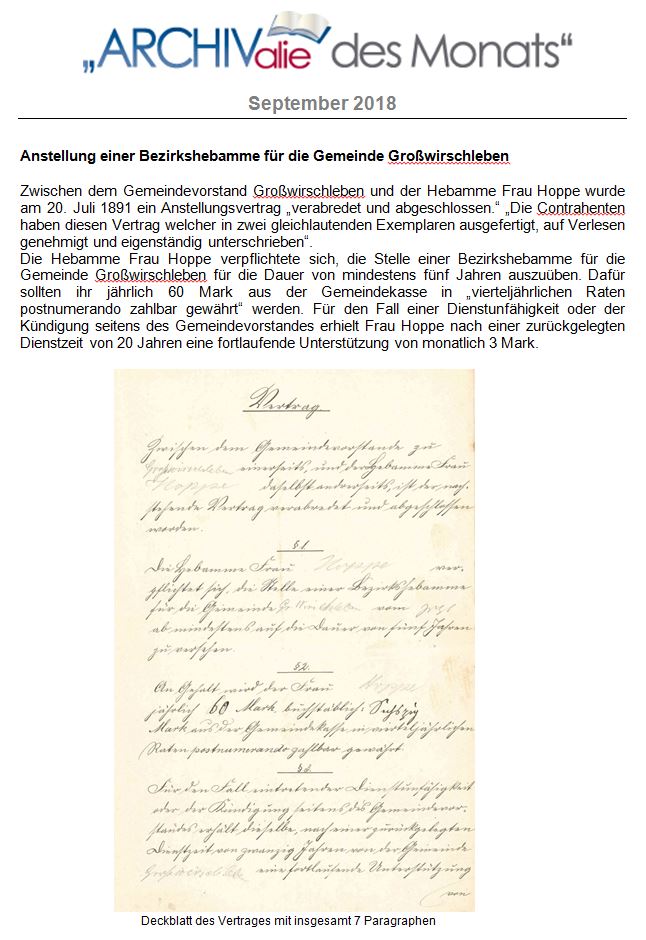 „ARCHIValie des Monats“
September 2018
Anstellung einer Bezirkshebamme für die Gemeinde Großwirschleben
Zwischen dem Gemeindevorstand Großwirschleben und der Hebamme Frau Hoppe wurde
am 20. Juli 1891 ein Anstellungsvertrag „verabredet und abgeschlossen.“ „Die Contrahenten
haben diesen Vertrag welcher in zwei gleichlautenden Exemplaren ausgefertigt, auf Verlesen
genehmigt und eigenständig unterschrieben“.
Die Hebamme Frau Hoppe verpflichtete sich, die Stelle einer Bezirkshebamme für die
Gemeinde Großwirschleben für die Dauer von mindestens fünf Jahren auszuüben. Dafür
sollten ihr jährlich 60 Mark aus der Gemeindekasse in „vierteljährlichen Raten
postnumerando zahlbar gewährt“ werden. Für den Fall einer Dienstunfähigkeit oder der
Kündigung seitens des Gemeindevorstandes erhielt Frau Hoppe nach einer zurückgelegten
Dienstzeit von 20 Jahren eine fortlaufende Unterstützung von monatlich 3 Mark.
Vertrag.
Zwischen dem Gemeindevorstande zu
Großwirschleben einerseits, und der Hebamme Frau
Hoppe daselbst anderseits, ist der nach-
stehende Vertrag verabredet und abgeschlossen
worden.
§ 1.
Die Hebamme Frau Hoppe ver-
pflichtet sich, die Stelle einer Bezirkshebamme
für die Gemeinde Gr Wirschleben vom
ab mindestens auf die Dauer von fünf Jahren
zu versehen.
§ 2.
An Gehalt wird der Frau Hoppe
jährlich 60 Mark, buchstäblich: Sechszig
Mark aus der Gemeindekasse in vierteljährlichen
Raten postnumerando zahlbar gewährt.
§ 3.
Für den Fall eintretender Dienstunfähigkeit
oder der Kündigung seitens des Gemeindevor-
standes erhält dieselbe, nach einer zurückgelegten
Dienstzeit von zwanzig Jahren, von der Gemeinde
Großwirschleben eine fortlaufende Unterstützung
von
Deckblatt des Vertrages mit insgesamt 7 Paragraphen